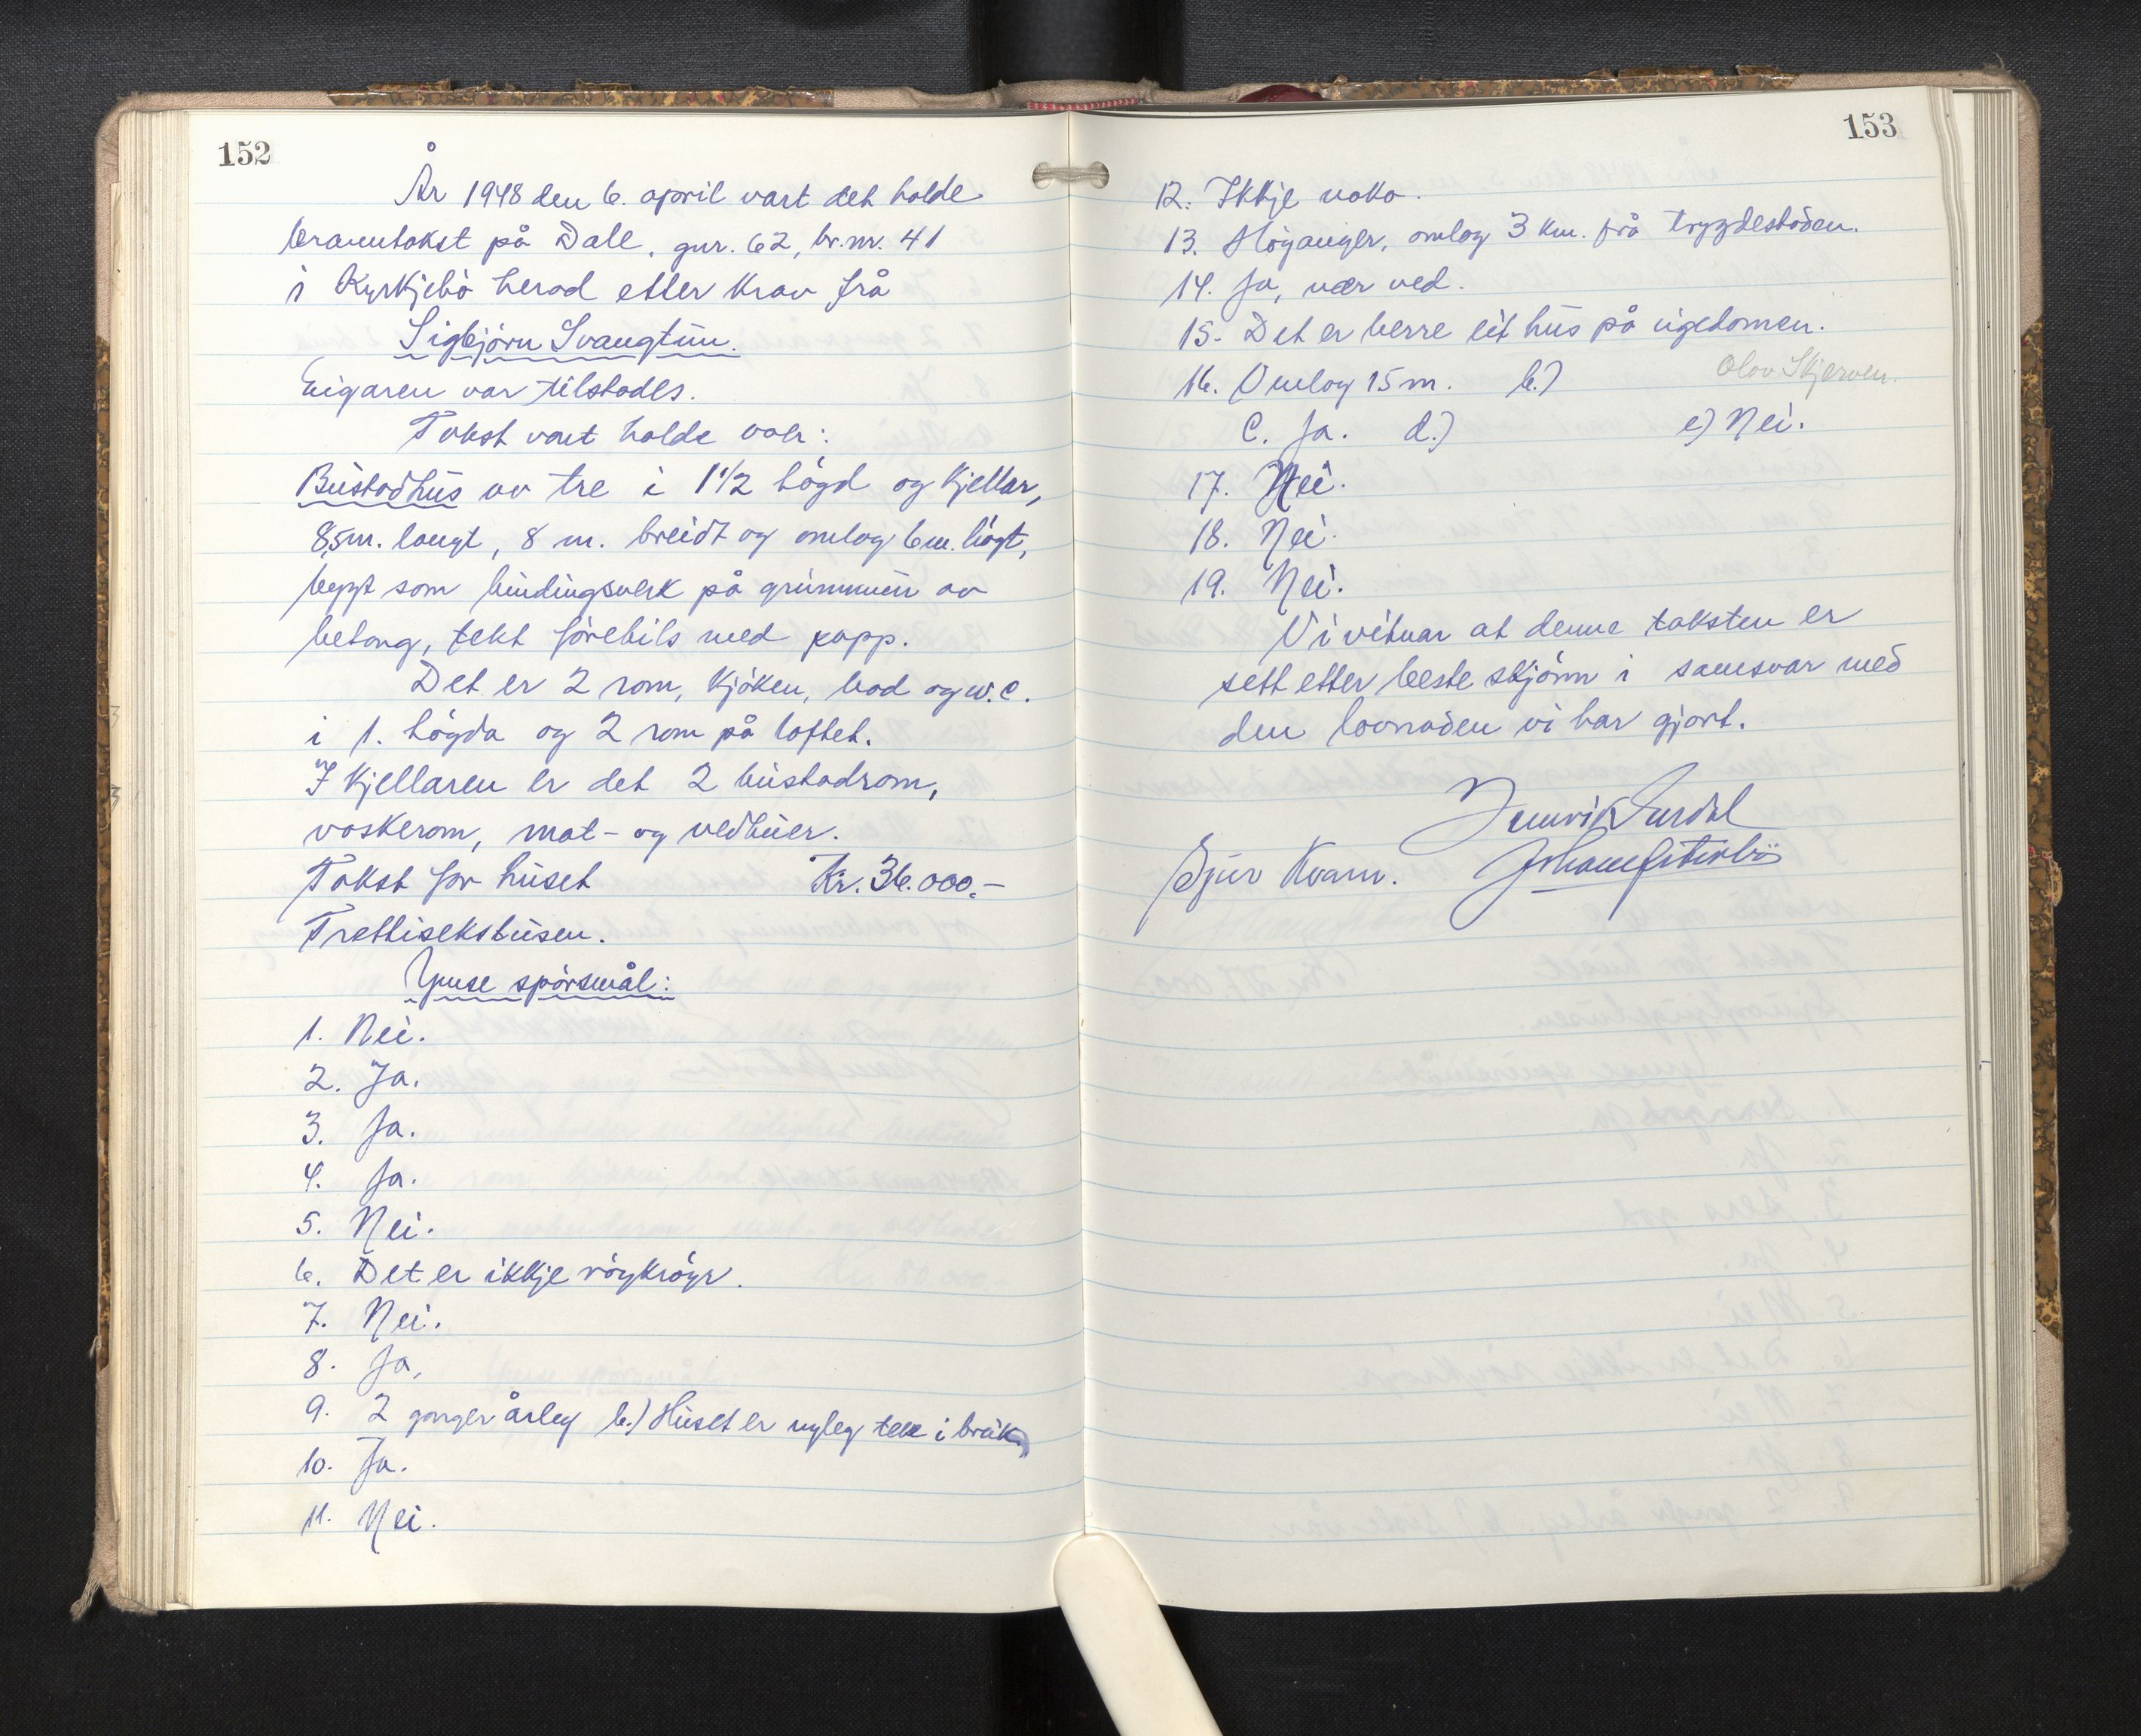 152
År 1948 den 6. april vart det halde
branntakst på Dale, gnr. 62, br.nr. 41
i Kyrkjebö herad etter krav frå
Sigbjörn Svangtun.
Eigaren var tilstades.
Takst vart halde over:
Bustadhus av tre i 1 1/2 högd og kjellar,
8,5 m. langt, 8 m. breidt og omlag 6 m. högt,
bygt som bindingsverk på grunnmur av
betong, tekt förebils med papp.
Det er 2 rom, kjöken, bad og w.c.
i 1. högda og 2 rom på loftet.
I kjellaren er det 2 bustadrom,
vaskerom, mat- og vedbuer.
Takst for huset Kr. 36.000.-
Trettisekstusen.
Ymse spörsmål:
1. Nei.
2. Ja.
3. Ja.
4. Ja.
5. Nei.
6. Det er ikkje röykröyr.
7. Nei.
8. Ja,
9. 2 ganger årleg b.) Huset er nyleg teke i bruk.
10. Ja.
11. Nei.
153
12. Ikkje noko.
13. Höyanger, omlag 3 km. frå trygdestaden.
14. Ja, nær ved.
15. Det er berre eit hus på eigedomen.
16. Omlag 15 m. b.) Olav Skjerven.
C. Ja. d.) e) Nei.
17. Nei.
18. Nei.
19. Nei.
Vi vitnar at denne taksten er
sett etter beste skjönn i samsvar med
den lovnaden vi har gjort.
Henrik Surdal
Sjur Kvam. Johan Österbö